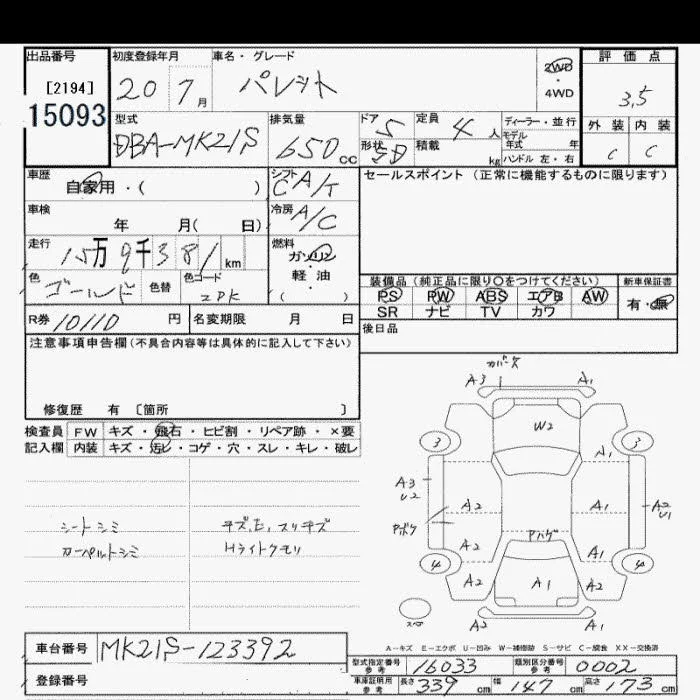 出品番号 初度登録年月 車名・グレード 評価点
[2194] 20 7月 パレット 2WD 4WD 3.5
15093
型式 排気量 ドア 定員 ディーラー・並行 外装 内装
DBA-MK21S 650cc 5 4人 モデル年式 年 C C
形状 5D 積載 kg ハンドル 左・右
車歴 シフト セールスポイント (正常に機能するものに限ります)
自家用・( ) C A/T
車検 冷房
年 月( 日) A/C
走行 燃料
15万9千381km ガソリン
色 色替 色コード 軽・油
ゴールド ZPK ( )
装備品 (純正品に限り○をつけてください) 新車保証書
PS PW ABS エアB AW 有・無
SR ナビ TV カワ
R券 10110円 名変期限 月 日 後日品
注意事項申告欄 (不具合内容等は具体的に記入して下さい)
修復歴 有 〔箇所 〕
検査員 FW キズ・飛石・ヒビ割・リペア跡・×要
記入欄 内装 キズ・汚レ・コゲ・穴・スレ・キレ・破レ
シートシミ
カーペットシミ
キズ,E,スリキズ
Hライトクモリ
カバーズ
A3 A1
W2
3 3
A1
A3
U2
A2 A1 A2
U1
Pボケ
Pハゲ
A2 A1
4 4
A2 A1 A2
A2 A1
A-キズ E-エクボ U-凹み W-補修跡 S-サビ C-腐食 XX-交換済
車台番号 MK21S-123392
登録番号
型式指定番号 参考 16033 類別区分番号 参考 0002
車庫証明用 参考 長さ 339cm 幅 147cm 高さ 173cm